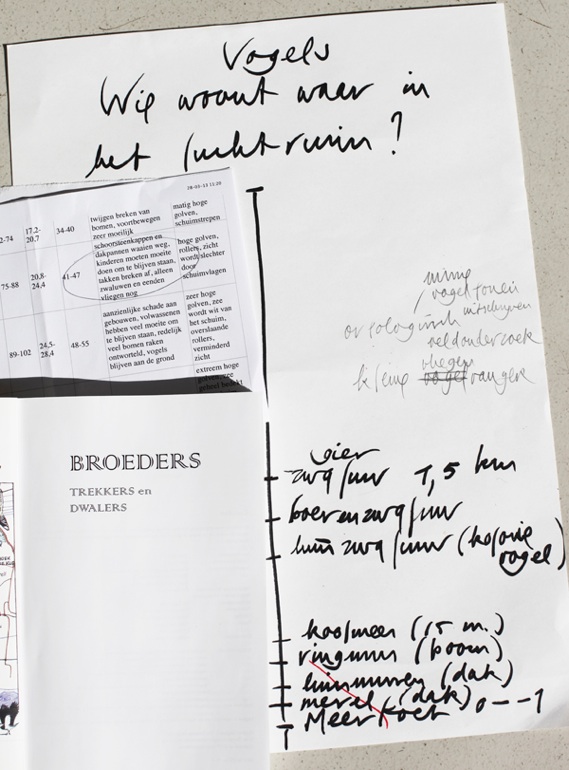 Vogels
Wie woont waar in
het luchtruim?
28-03-13 11:20
2-74 17.2-20.7 34-40 twijgen breken van bomen, voortbewegen zeer moeilijk matig hoge golven, schuimstrepen
75-88 20,8-24,4 41-47 schoorsteenkappen en dakpannen waaien weg, kinderen moeten moeite doen om te blijven staan, takken breken af, alleen zwaluwen en eenden vliegen nog hoge golven, rollers, zicht wordt slechter door schuimvlagen
89-102 24,5-28,4 48-55 aanzienlijke schade aan gebouwen, volwassenen hebben veel moeite om te blijven staan, redelijk veel bomen raken ontworteld, vogels blijven aan de grond zeer hoge golven, zee wordt wit van het schuim, overslaande rollers, verminderd zicht
extreem hoge golven, zee geheel bedekt
veldonderzoek
BROEDERS
TREKKERS en
DWALERS
gier
zwaluw 1,5 km
boerenzwaluw
huiszwaluw (kolonie
vogel)
koolmees (15 m.)
ringmus (boom)
huismussen (dak)
merel (dak) 0--1
Meerkoet